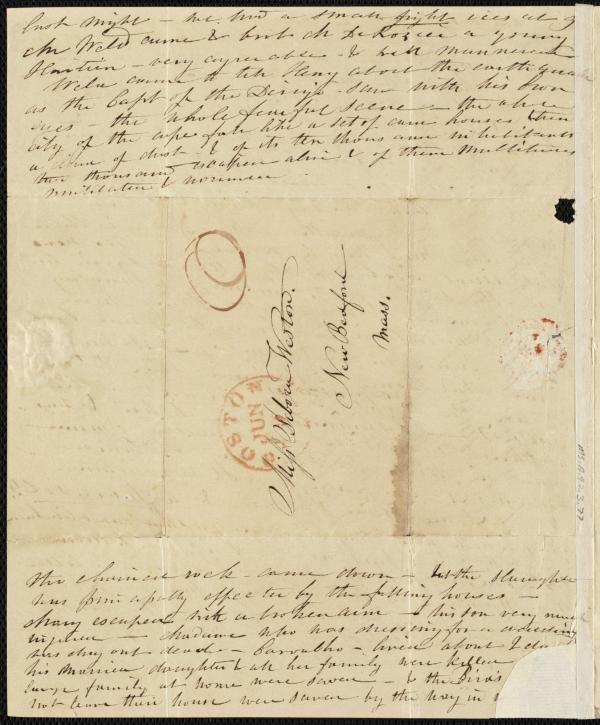 last night – we had a small fight ices at 9
Mr Weld came & brot Mr De Rosier a young
Haitien – very agreeable – & well mannered
Weld came to tell Henry about the earthquake
as the Capt of the Dereys saw with his own
eyes – the whole fearful scene – the
city of the cape fate like a set of card houses then
a cloud of dust – & of its ten thousand inhabitants
two thousand escaped alive & of them multitudes
mutilated &
Miss Debora Weston.
New Bedford
Mass.
JUN
Ms.A.9.2.3.77
The chained rock – came down – but the slaughter
was principally effected by the falling houses –
escaped with a broken arm – & his son very much
injured – Madame who was dressing for a
was dug out dead – Carvalho – lived about 2 days
his married daughter & all her family were killed
large family at home were saved – & the Birds
not leave their house were saved by the way in